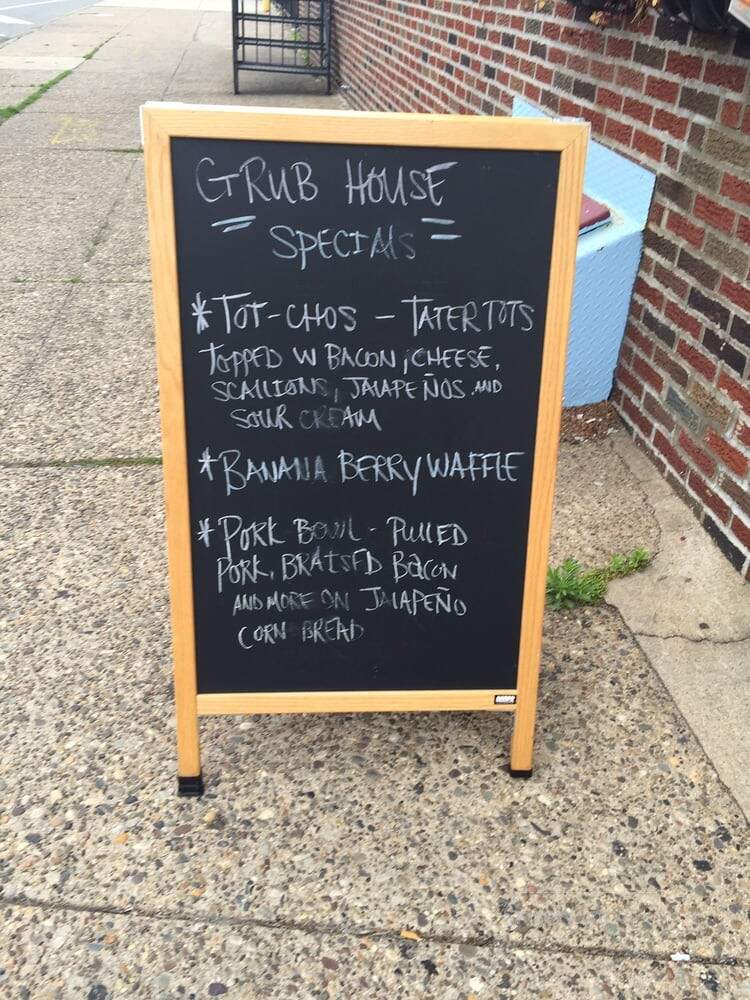 GRUB HOUSE
SPECIALS
* TOT-CHOS - TATER TOTS
TOPPED W BACON, CHEESE,
SCALLIONS, JALAPEÑOS AND
SOUR CREAM
* BANANA BERRY WAFFLE
* PORK BOWL - PULLED
PORK, BRAISED BACON
AND MORE ON JALAPEÑO
CORN BREAD